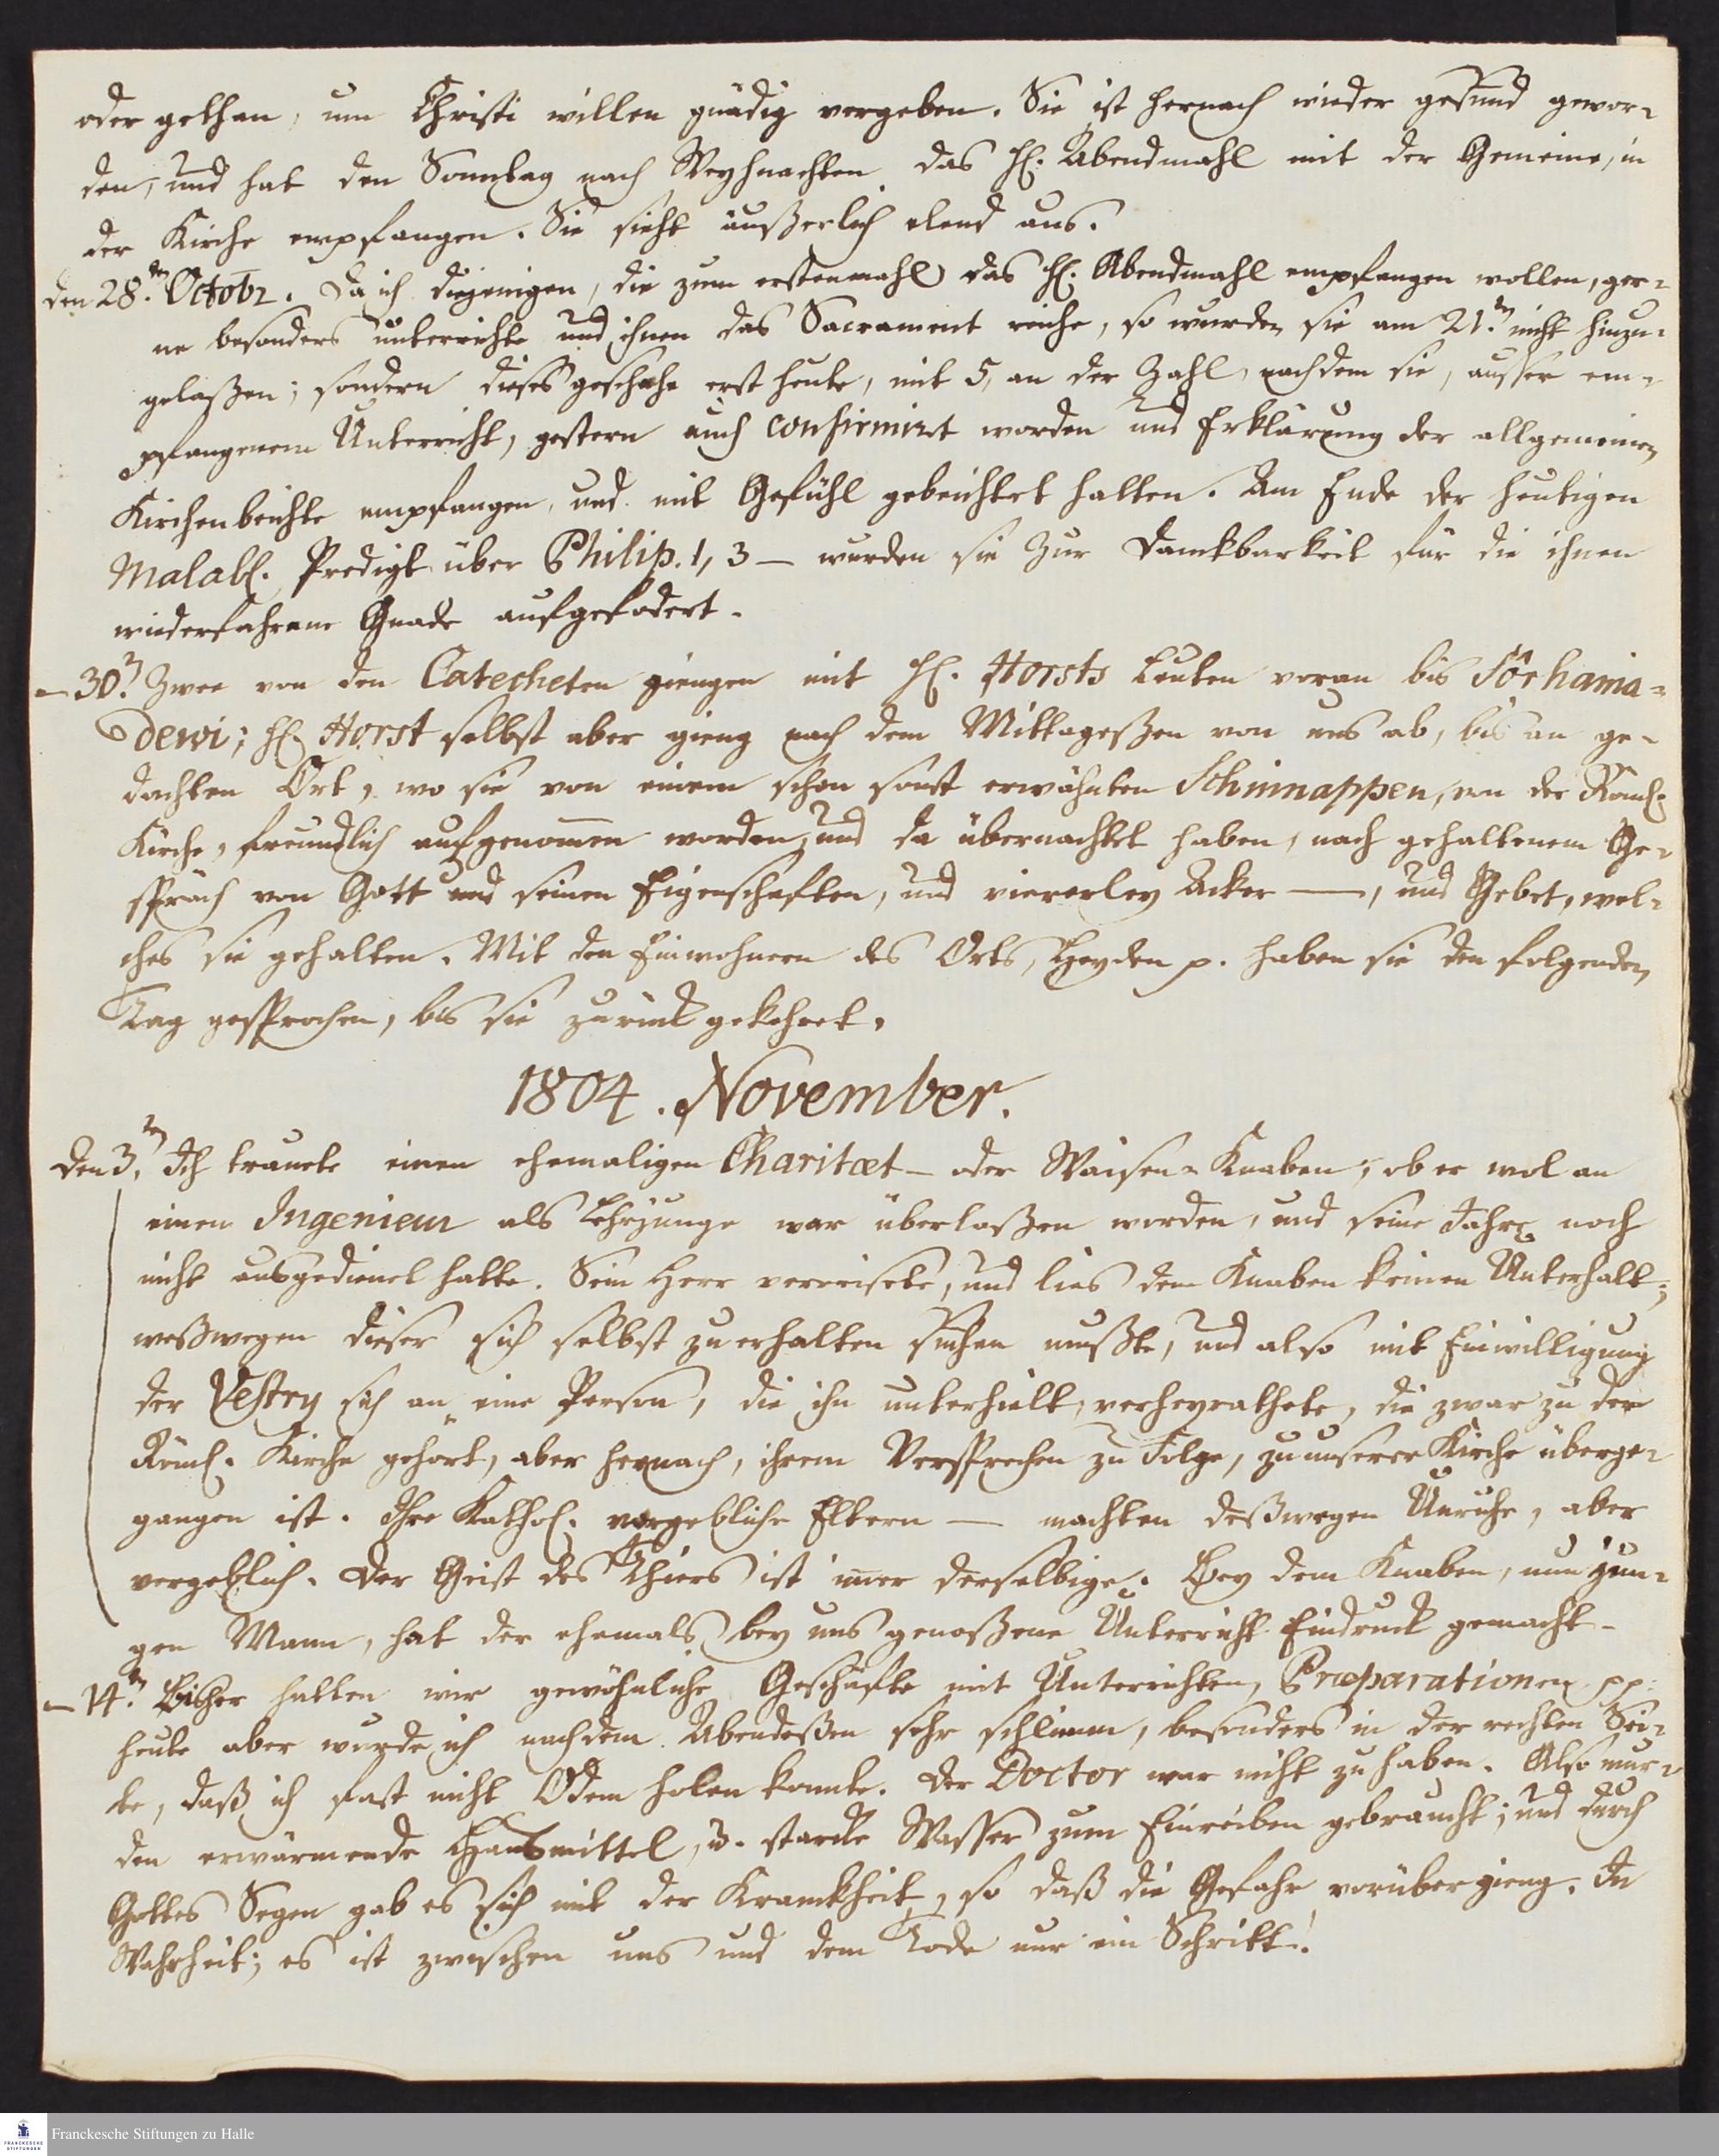 oder gethan, um Christi willen gnädig vergeben. Sie ist hernach wieder gesund gewor-
den, und hat den Sonntag nach Weyhnachten das hl. Abendmahl mit der Gemeine, in
der Kirche empfangen. Sie sieht äußerlich elend aus.
den 28.ten Octobr. Da ich diejenigen, die zum erstenmahl das hl. Abendmahl empfangen wollen, ger-
ne besonders unterrichte und ihnen das Sacrament reiche, so wurden sie am 21.ten nicht hinzu-
gelaßen; sondern dieses geschahe erst heute, mit 5, an der Zahl, nachdem sie, ausser em-
pfangenem Unterricht, gestern auch confirmirt worden und Erklärung der allgemeinen
Kirchenbeichte empfangen, und mit Gefühl gebeichtet hatten. Am Ende der heutigen
Malabl. Predigt über Philip. 1, 3 — wurden sie zur Danckbarkeit für die ihnen
wiederfahrene Gnade aufgefodert.
— 30.ten Zwee von den Catecheten giengen mit H. Horsts Leuten voran bis
dewi; H. Horst selbst aber gieng nach dem Mittageßen von uns ab, bis an ge-
dachten Ort, wo sie von einem schon sonst erwähnten Schinnappen, von der Röml.
Kirche, freundlich aufgenommen worden, und da übernachtet haben, nach gehaltenem Ge-
spräch von Gott und seinen Eigenschaften, und viererley Acker —, und Gebet, wel-
ches sie gehalten. Mit den Einwohnern des Orts, Heyden p. haben sie den folgenden
Tag gesprochen, bis sie zurück gekehret.
1804. November.
Den 3.ten Ich trauete einen ehemaligen Charitæt- oder Waisen-Knaben; ob er wol an
einen Ingenieur als Lehrjunge war überlaßen worden, und seine Jahre noch
nicht ausgedienet hatte. Sein Herr verreisete, und lies dem Knaben keinen Unterhalt;
weßwegen dieser sich selbst zu erhalten suchen mußte, und also mit Einwilligung
der Vestry sich an eine Person, die ihn unterhielt, verheyrathete, die zwar zu der
Röml. Kirche gehört, aber hernach, ihrem Versprechen zu Folge, zu unserer Kirche überge-
gangen ist. Ihre Kathol. vorgebliche Eltern — machten deßwegen Unruhe, aber
vergeblich. Der Geist des Thiers ist immer derselbige. Bey dem Knaben, nun jun-
gen Mann, hat der ehemals bey uns genoßene Unterricht Eindruck gemacht.
— 14.ten Bisher hatten wir gewöhnliche Geschäfte mit Unterrichten, Præparationen pp.
heute aber wurde ich nach dem Abendeßen sehr schlimm, besonders in der rechten Sei-
te, daß ich fast nicht Odem holen konnte. Der Doctor war nicht zu haben. Also wur-
den erwärmende Hausmittel, u. starcke Wasser zum Einreiben gebraucht; und durch
Gottes Segen gab es sich mit der Kranckheit, so daß die Gefahr vorübergieng. In
Wahrheit; es ist zwischen uns und dem Tode nur ein Schritt!
Franckesche Stiftungen zu Halle